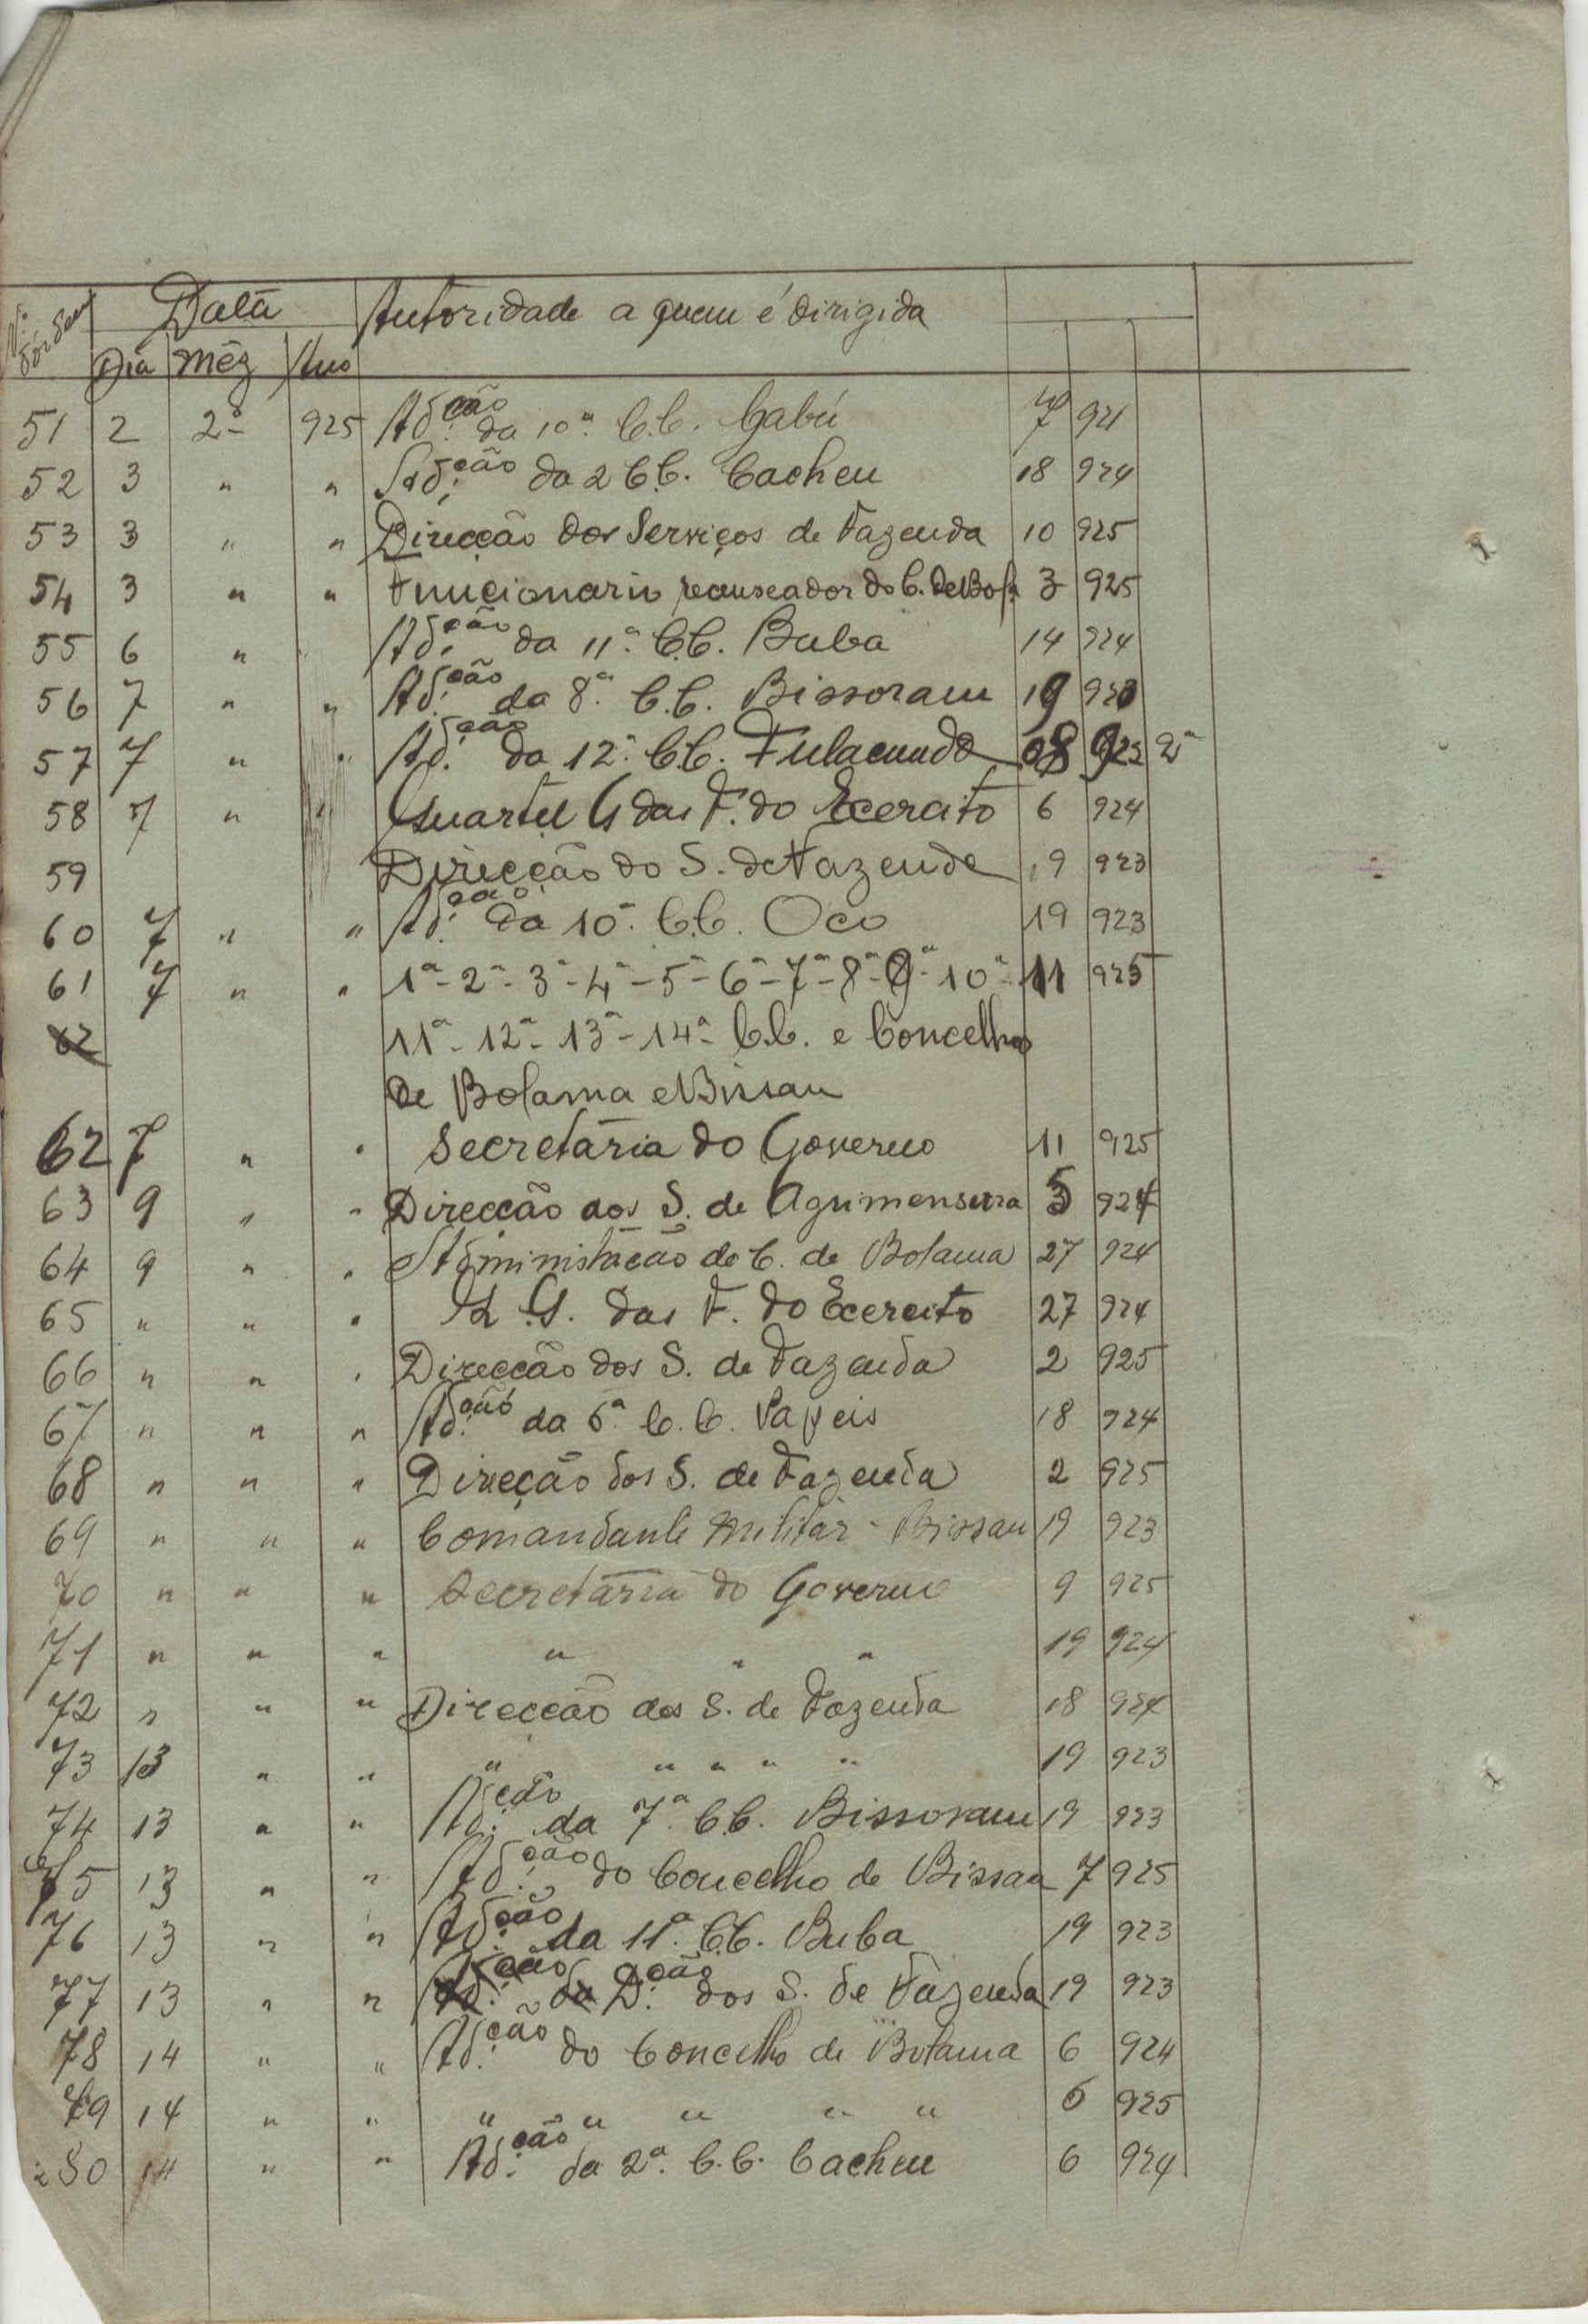 Nº d'órdem Data Autoridade a quem é dirigida
Dia Mêz Ano
51 2 2º 925 Ad.ção da 10ª C.C. Gabú 7 924
52 3 " " Ad.ção da 2 C.C. Cacheu 18 924
53 3 " " Direcção dos Serviços de Fazenda 10 925
54 3 " " Funcionario recenseador do C. de Bol. 3 925
55 6 " Ad.ção da 11ª C.C. Buba 14 924
56 7 " " Ad.ção da 8ª C.C. Bissoram 19 923
57 7 " " Ad.ção da 12ª C.C. Fulacunda 8 925 2ª
58 7 " " Quartel G das F. do Ecercito 6 924
59 Direcção do S. de Fazenda 19 923
60 7 " " Ad.ção da 10ª C.C. Oco 19 923
61 7 " " 1ª - 2ª - 3ª - 4ª - 5ª - 6ª - 7ª - 8ª - 9ª - 10ª - 11 925
62 11ª - 12ª - 13ª - 14ª C.C. e Concelhos
de Bolama e Bissau
62 7 " " Secretaria do Governo 11 925
63 9 " " Direcção dos S. de Agrimensura 5 924
64 9 " " Administação do C. de Bolama 27 924
65 " " " Q. G. das F. do Ecercito 27 924
66 " " " Direcção dos S. de Fazenda 2 925
67 " " " Ad.ção da 6ª C.C. Papeis 18 924
68 " " " Direcção dos S. de Fazenda 2 925
69 " " " Comandante Militar - Bissau 19 923
70 " " " Secretaria do Governo 9 925
71 " " " " " " 19 924
72 " " " Direcção dos S. de Fazenda 18 924
73 13 " " " " " " " 19 923
74 13 " " Ad.ção da 7ª C.C. Bissoram 19 923
75 13 " " Ad.ção do Concelho de Bissau 7 925
76 13 " " Ad.ção da 11ª C.C. Buba 19 923
77 13 " " Ad.ção da D.ção dos S. de Fazenda 19 923
78 14 " " Ad.ção do Concelho de Bolama 6 924
79 14 " " " " " " " 6 925
80 14 " " Ad.ção da 2ª C.C. Cacheu 6 924